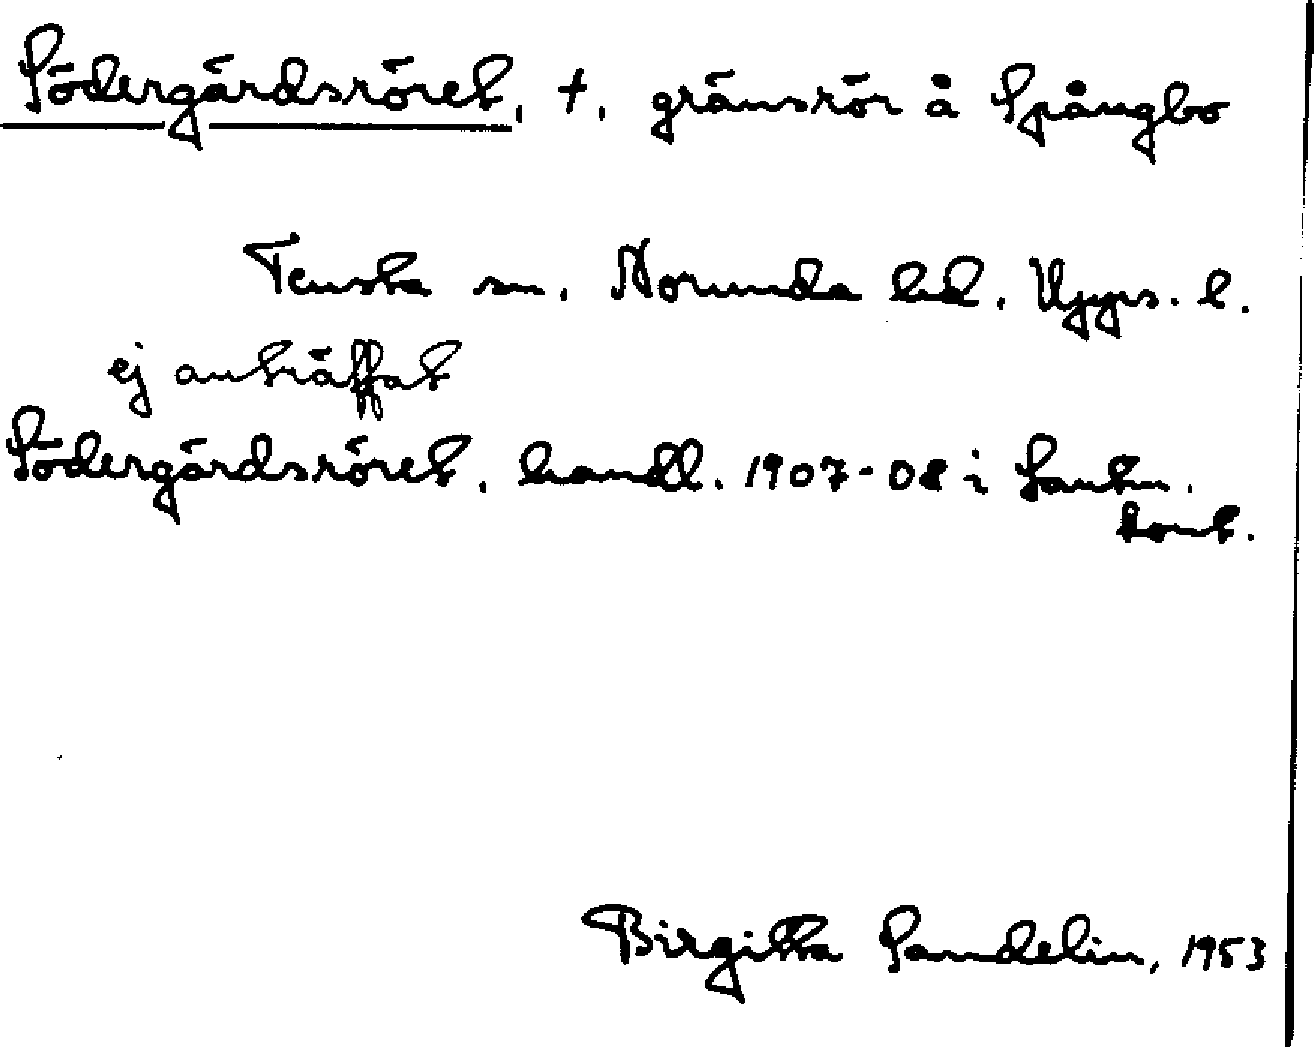 Södergårdsröret, †, gränsrör å Spångbo
Tensta sn, Norunda hd, Upps. l.
ej anträffat
Södergårdsröret, handl. 1907-08 i Lantm.
kont.
Birgitta Sandelin, 1953